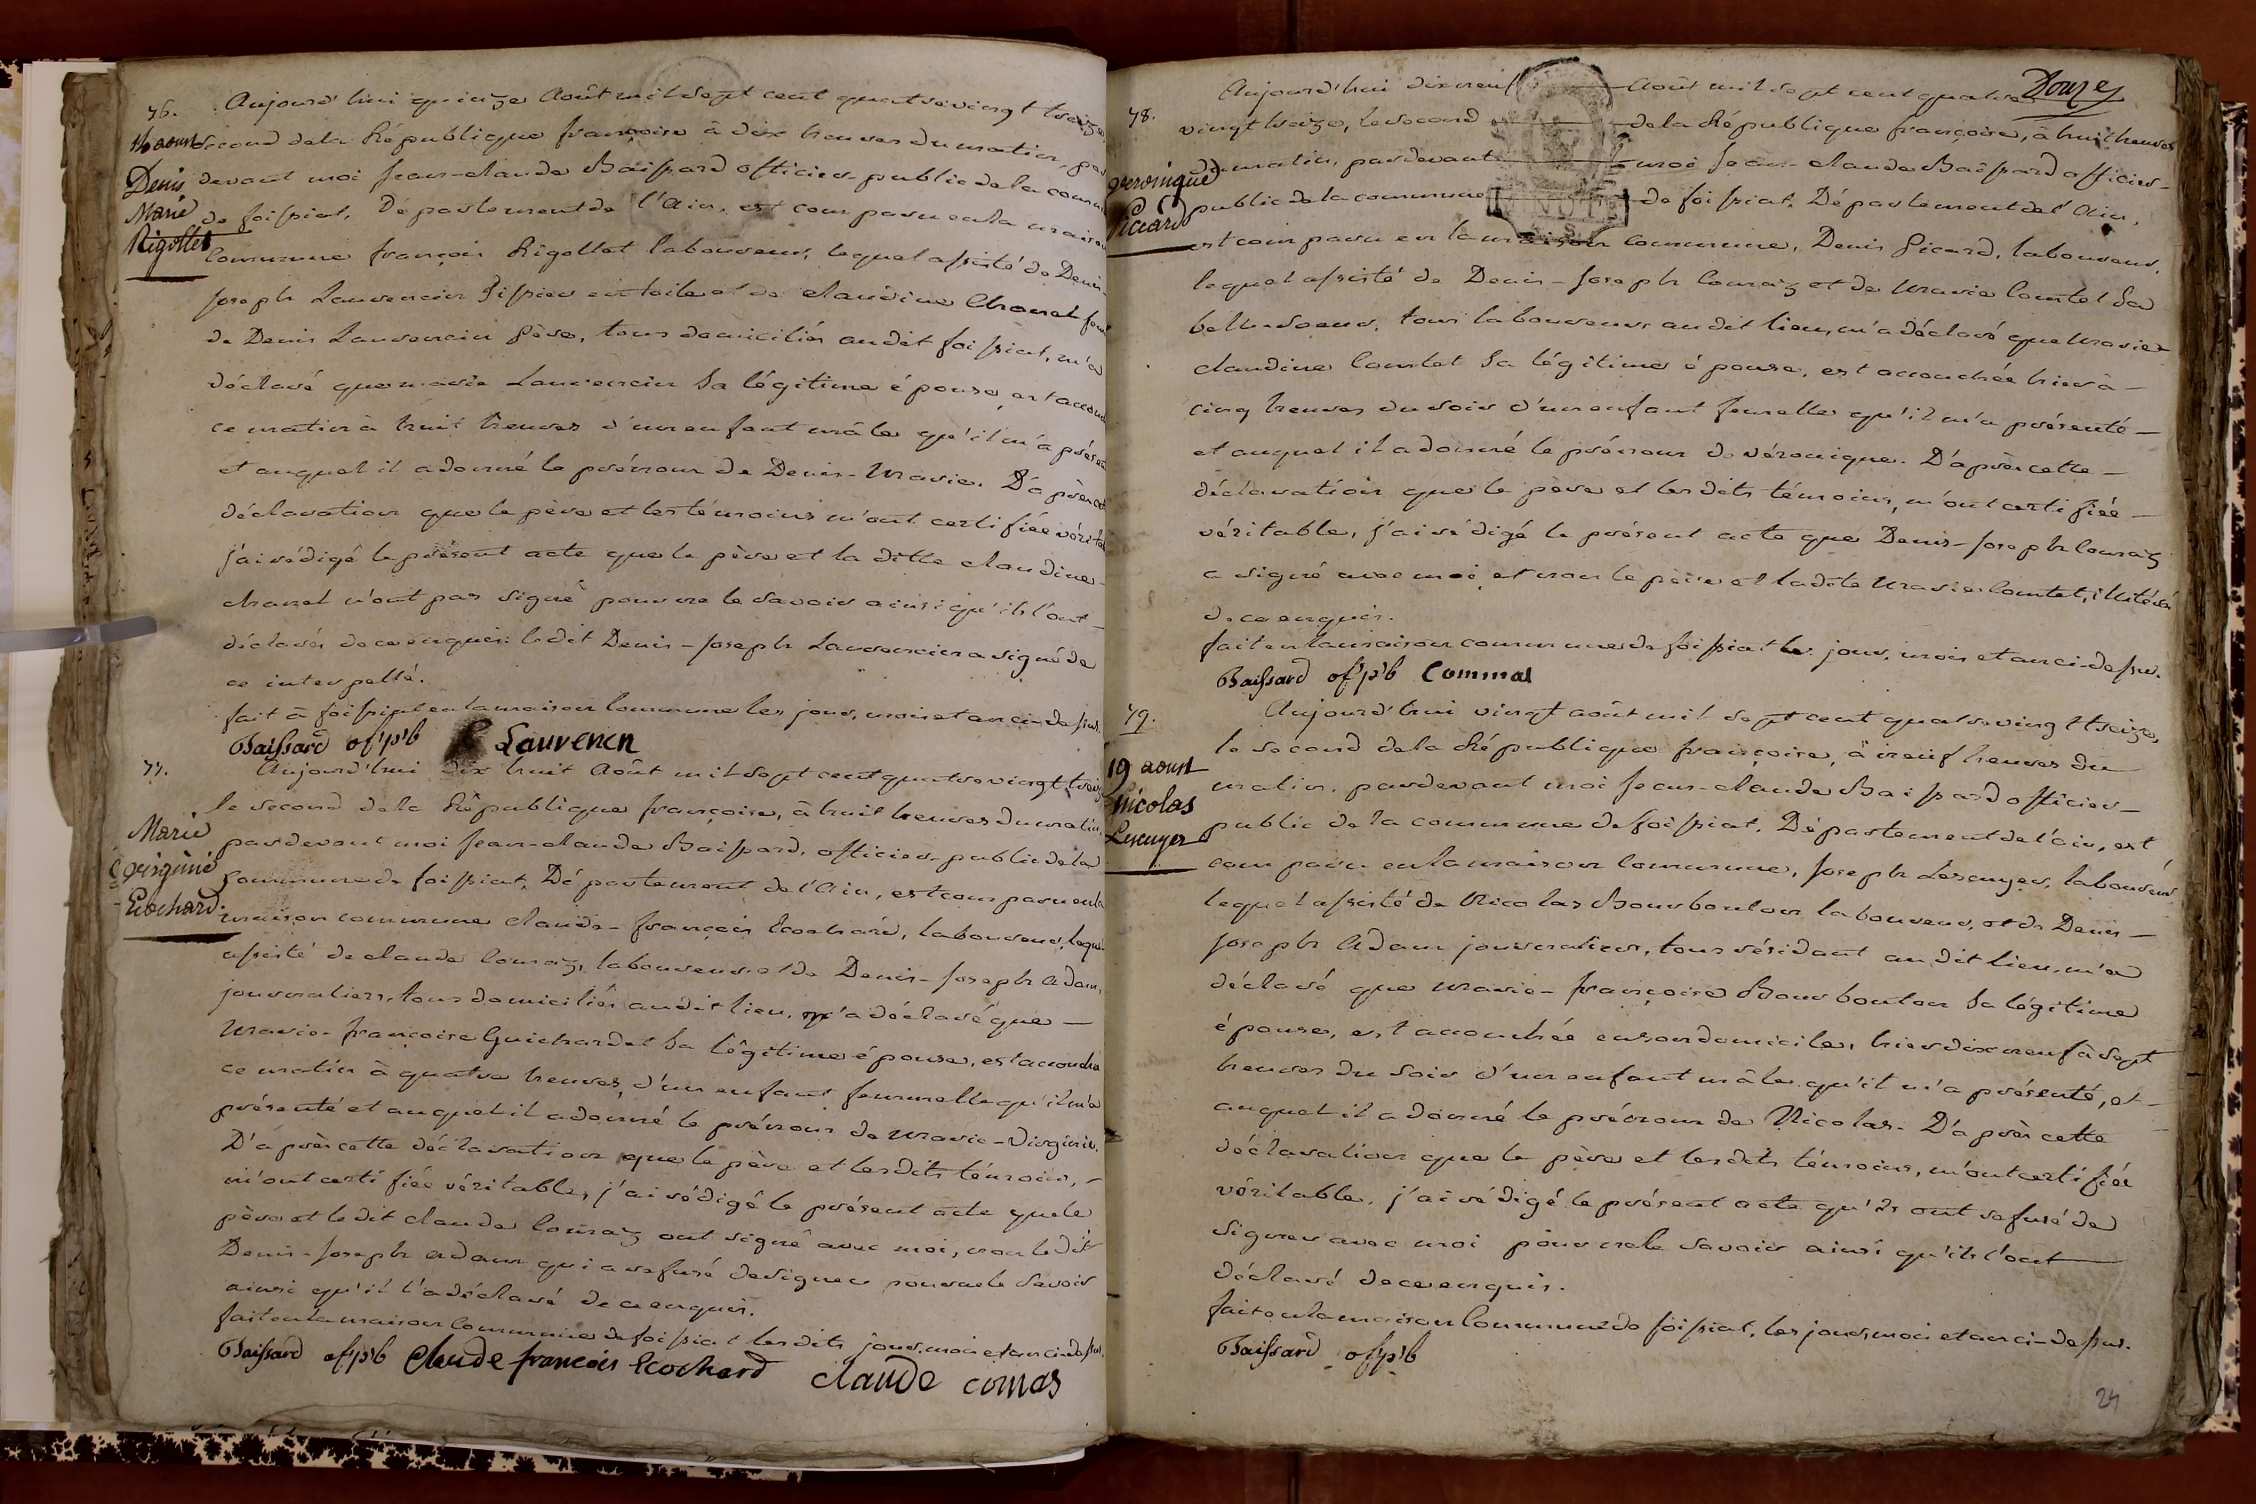 76.
Aujourd'hui quinze Août mil sept cent quatre vingt treize
second de la République françoise à dix heures du matin, par
devant moi Jean-claude Baissard officier public de la comm
de foissiat, Département de l'Ain, est comparu en la maison
Commune françois Rigollet laboureur, lequel assisté de Denis-
Joseph Laurencin Tissier en toile et de claudine Chanel
de Denis Laurencin Père, tous domiciliés audit foissiat, m'a
déclaré que marie Laurencin sa légitime épouse, est accou
ce matin à huit heures d'un enfant mâle qu'il m'a présen
et auquel il a donné le prénom de Denis-Marie. D'après cet
déclaration que le père et les témoins m'ont certifiée vérita
j'ai rédigé le présent acte que le père et la ditte claudine-
chanel n'ont pas signé pour ne le savoir ainsi qu'ils l'ont-
déclarés de ce enquis; ledit Denis-Joseph Laurencin a signé de
ce interpellé.
fait à foissiat en la maison Commune les jour, mois et an ci-dessus.
Baissard of. p.b Laurencn
16 aoust
Denis
Marie
Rigollet
77.
Aujourd'hui dix huit Août mil sept cent quatre vingt treiz
le second de la République françoise, à huit heures du matin,
pardevant moi Jean-claude Baissard, officier public de la
Commune de foissiat, Département de l'Ain, est comparu en la
maison commune claude-françois Ecochard, laboureur, leque
assisté de claude Comaz, laboureur et de Denis-Joseph Adam,
journaliers, tous domiciliés audit lieu, m'a déclaré que —
Marie-françoise Guichardet sa légitime épouse, est accouchée
ce matin à quatre heures, d'un enfant femmelle qu'il m'a
présenté et auquel il a donné le prénom de Marie-Virginie.
D'après cette déclaration que le père et lesdits témoins, -
m'ont certifiée véritable, j'ai rédigé le présent acte que le
père et ledit claude Comaz ont signé avec moi, non ledit
Denis-Joseph Adam qui a refusé de signer pour ne le savoir
ainsi qu'il l'a déclaré de ce enquis.
fait en la maison Commune de foissiat lesdits jour, mois et an ci-dessus.
Baissard of. p.b claude francois Ecochard claude comas
Marie
virginie
Ecochard.
Douze
78.
Aujourd'hui dix neuf — Août mil sept cent quatre
vingt treize, le second — de la République françoise, à huit heures
du matin, pardevant — moi Jean-claude Baissard officier-
public de la commune — de foissiat, Département de l'Ain,
est comparu en la maison Commune, Denis Picard, laboureur,
lequel assisté de Denis-Joseph Comaz et de Marie Comtet sa
belle-soeur, tous laboureurs audit lieu, m'a déclaré que Marie-
claudine Comtet sa légitime épouse, est accouchée hier à -
cinq heures du soir d'un enfant femelle qu'il m'a présenté -
et auquel il a donné le prénom de véronique. D'après cette -
déclaration que le père et lesdits témoins, m'ont certifiée -
véritable, j'ai rédigé le présent acte que Denis-Joseph Comaz
a signé avec moi et non le père et ladite Marie Comtet, illitérés
de ce enquis.
fait en la maison commune de foissiat les jour, mois et an ci-dessus.
Baissard of. p.b Commas
veronique
Piccard
MINUTE
79.
Aujourd'hui vingt août mil sept cent quatre vingt treize,
le second de la République françoise, à neuf heures du
matin, pardevant moi Jean-claude Baissard officier-
public de la commune de foissiat, Département de l'ain, est
comparu en la maison Commune, Joseph Lescuyer, laboureur
lequel assisté de Nicolas Bourbonlon laboureur, et de Denis-
Joseph Adam journalier, tous résidant audit lieu, m'a
déclaré que marie-françoise Bourbonlon sa légitime
épouse, est accouchée en son domicile, hier dix neuf à sept
heures du soir d'un enfant mâle qu'il m'a présenté, et -
auquel il a donné le prénom de Nicolas. D'après cette
déclaration que le père et lesdits témoins, m'ont certifiée
véritable, j'ai rédigé le présent acte qu'ils ont refusé de
signer avec moi pour ne le savoir ainsi qu'ils l'ont —
déclaré de ce enquis.
fait en la maison Commune de foissiat, les jour, mois et an ci-dessus.
Baissard of. p.b
19 aoust
nicolas
Lescuyer
24